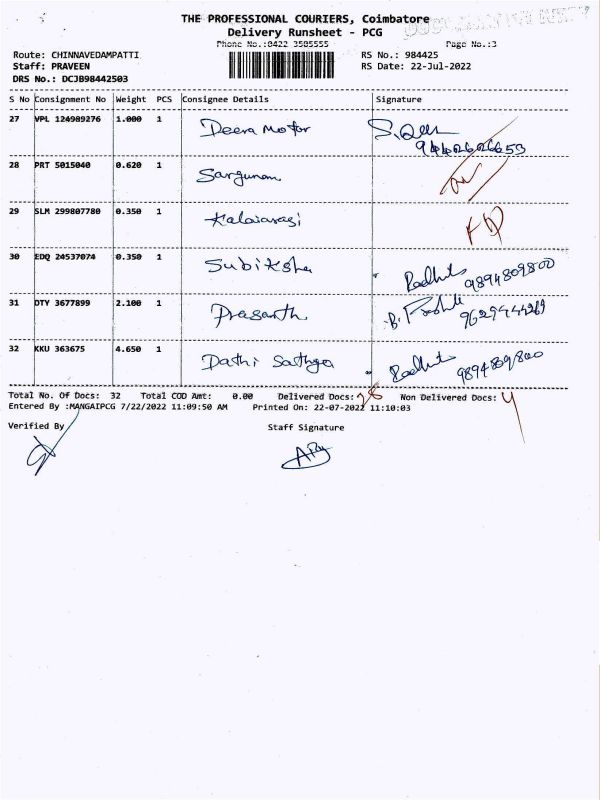 THE PROFESSIONAL COURIERS, Coimbatore
Delivery Runsheet - PCG
Phone No.:0422 3505555 Page No.:3
Route: CHINNAVEDAMPATTI RS No.: 984425
Staff: PRAVEEN RS Date: 22-Jul-2022
DRS No.: DCJB98442503
S No Consignment No Weight PCS Consignee Details Signature
27 VPL 124989276 1.000 1 Deera Motor
28 PRT 5015040 0.620 1 Sargunam
29 SLM 299807780 0.350 1 Kalaiarasi
30 EDQ 24537074 0.350 1 Subiksha 9894809800
31 DTY 3677899 2.100 1 Prasanth
32 KKU 363675 4.650 1 Dathi Sathya 9894809800
Total No. Of Docs: 32 Total COD Amt: 0.00 Delivered Docs: 28 Non Delivered Docs: 4
Entered By :MANGAIPCG 7/22/2022 11:09:50 AM Printed On: 22-07-2022 11:10:03
Verified By Staff Signature